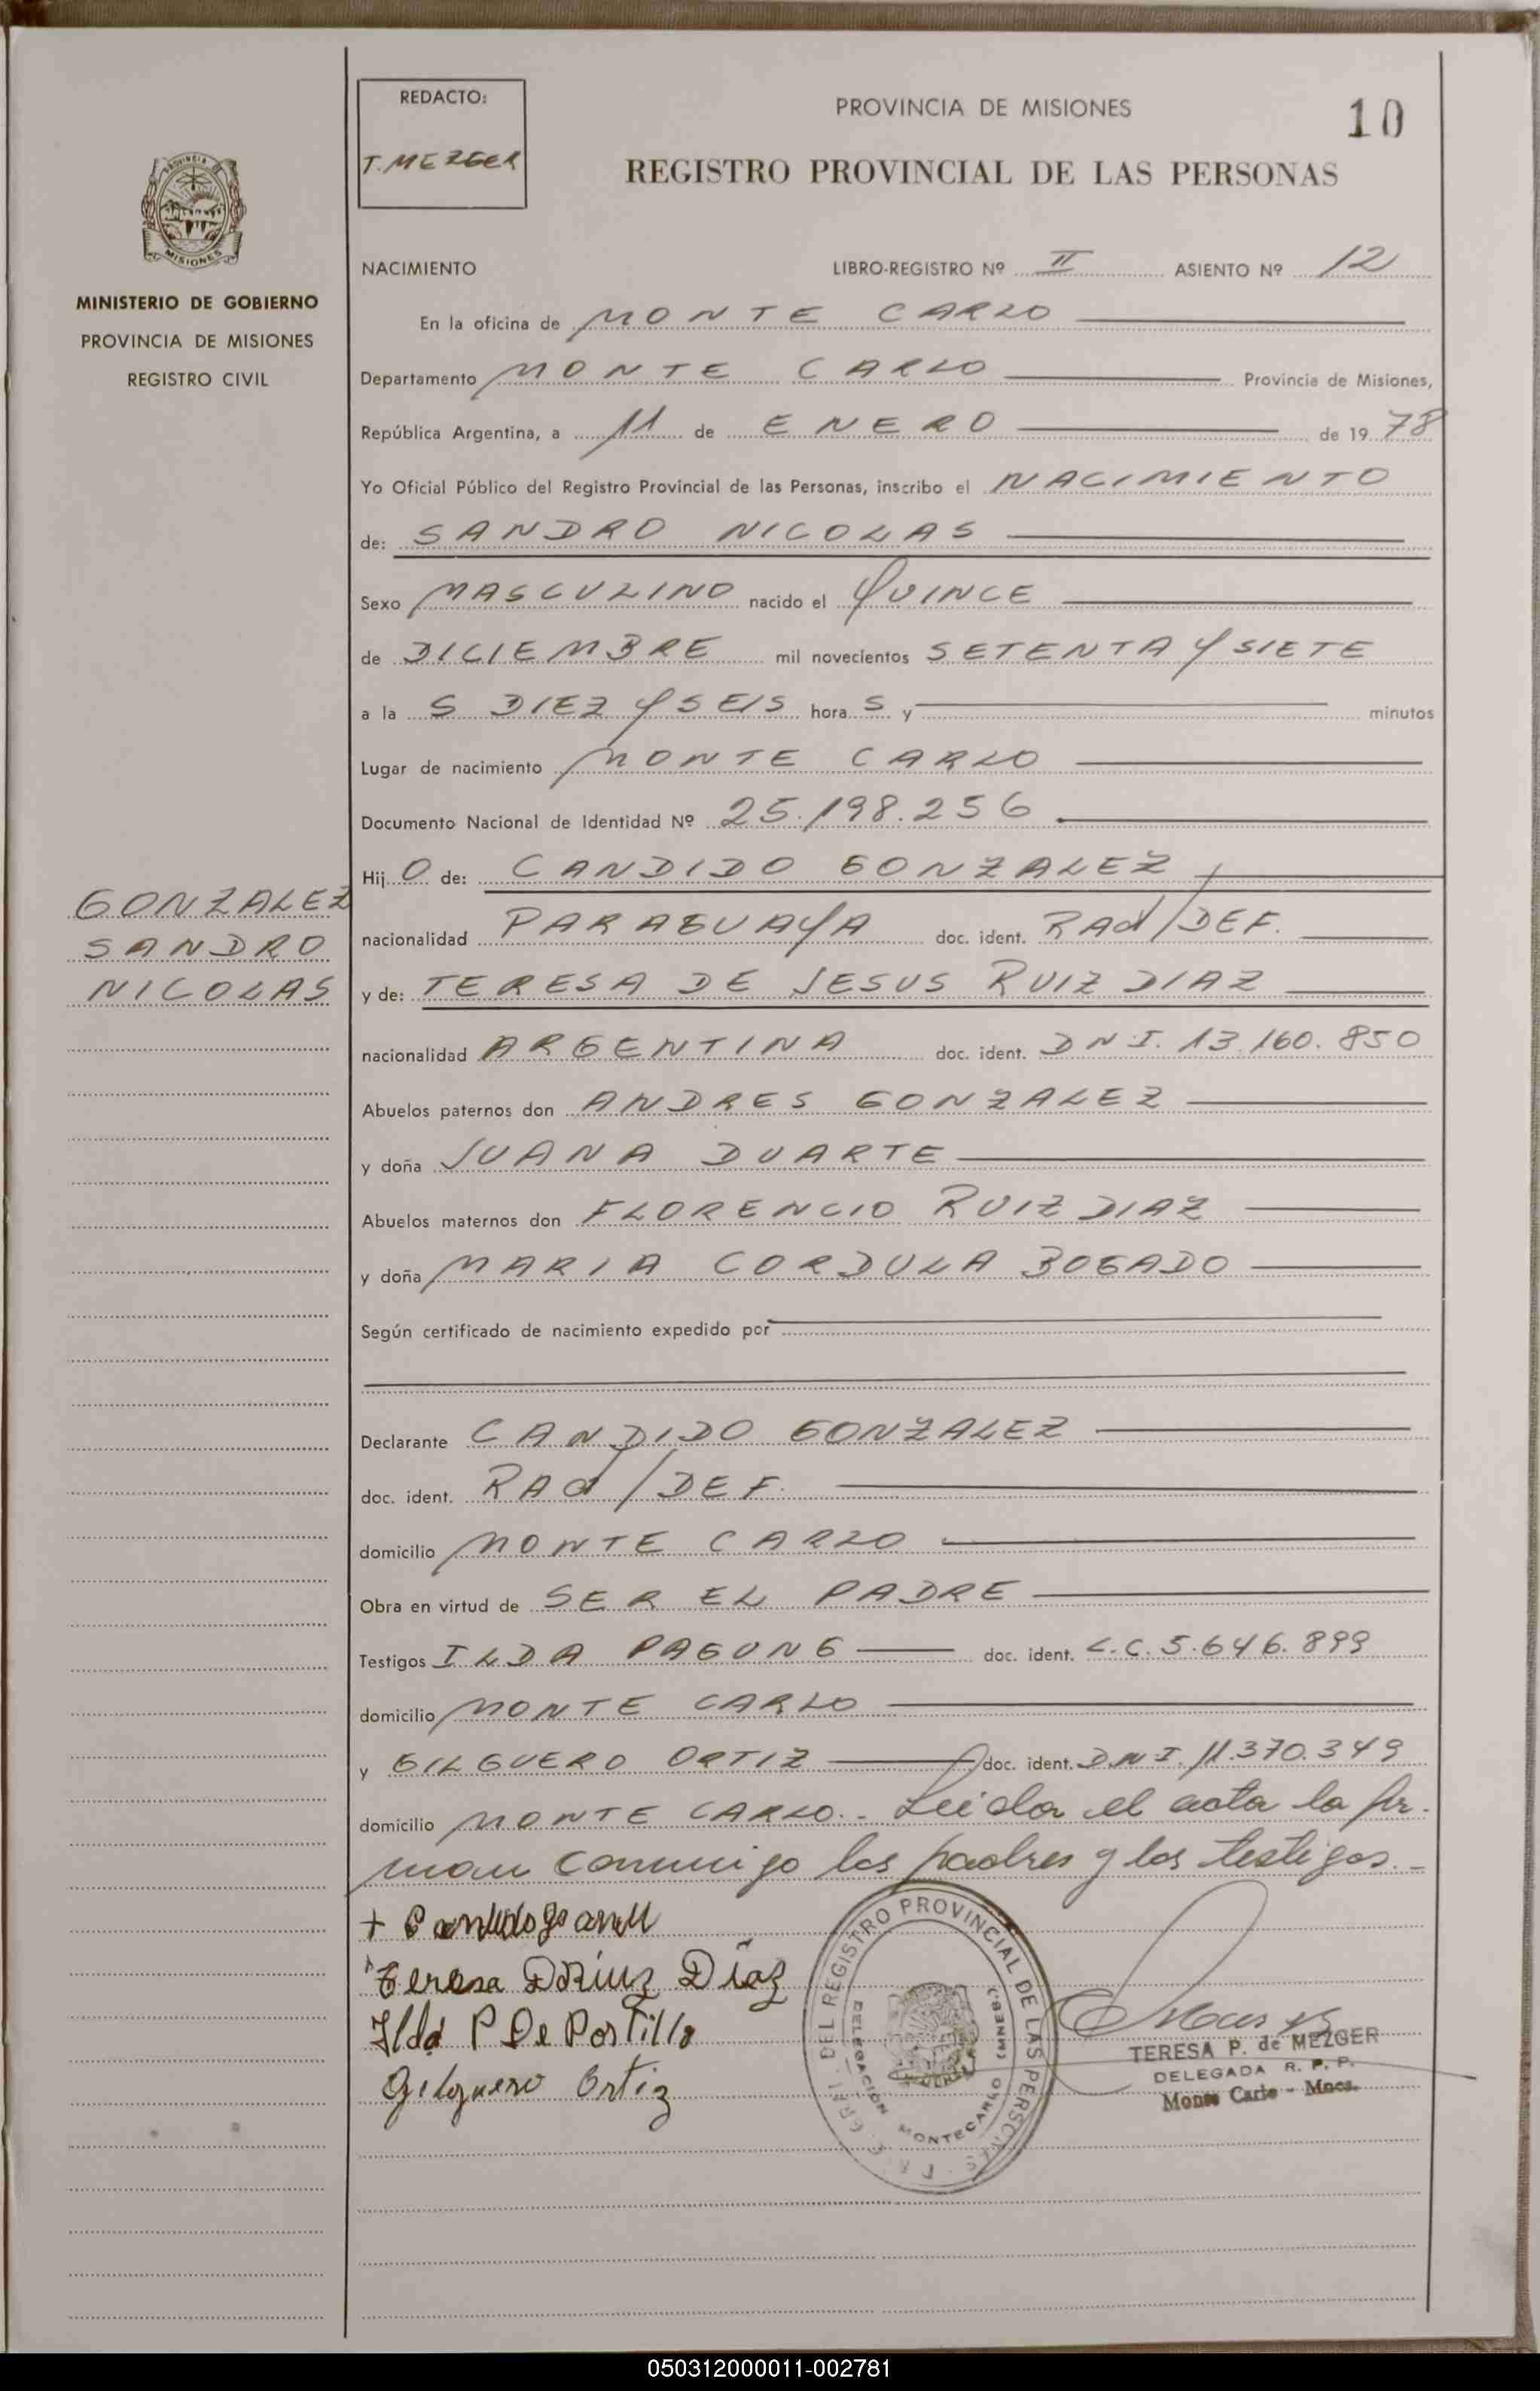 REDACTO:
T. MEZGER
PROVINCIA DE MISIONES
10
REGISTRO PROVINCIAL DE LAS PERSONAS
PROVINCIA
MISIONES
MINISTERIO DE GOBIERNO
PROVINCIA DE MISIONES
REGISTRO CIVIL
NACIMIENTO LIBRO-REGISTRO Nº II ASIENTO Nº 12
En la oficina de MONTE CARLO
Departamento MONTE CARLO Provincia de Misiones,
República Argentina, a 11 de ENERO de 19 78
Yo Oficial Público del Registro Provincial de las Personas, inscribo el NACIMIENTO
de: SANDRO NICOLAS
Sexo MASCULINO nacido el QUINCE
de DICIEMBRE mil novecientos SETENTA Y SIETE
a la S DIEZ Y SEIS hora S y minutos
Lugar de nacimiento MONTE CARLO
Documento Nacional de Identidad Nº 25.198.256
Hij O de: CANDIDO GONZALEZ
GONZALEZ
SANDRO
NICOLAS
nacionalidad PARAGUAYA doc. ident. RAd/DEF.
y de: TERESA DE JESUS RUIZ DIAZ
nacionalidad ARGENTINA doc. ident. DNI. 13.160.850
Abuelos paternos don ANDRES GONZALEZ
y doña JUANA DUARTE
Abuelos maternos don FLORENCIO RUIZ DIAZ
y doña MARIA CORDULA BOGADO
Según certificado de nacimiento expedido por
Declarante CANDIDO GONZALEZ
doc. ident. RAd/DEF.
domicilio MONTE CARLO
Obra en virtud de SER EL PADRE
Testigos ILDA PAGUNG doc. ident. L.C. 5.646.899
domicilio MONTE CARLO
y GILGUERO ORTIZ doc. ident. DNI. 11.370.349
domicilio MONTE CARLO.- Leida el acta la fir-
man conmigo los padres y los testigos.-
Teresa D Ruiz Diaz
Ilda P De Portillo
Gilguero Ortiz
DEL REGISTRO PROVINCIAL DE LAS PERSONAS
DELEGACION MONTECARLO (MNES.)
TERESA P. de MEZGER
DELEGADA R. P. P.
Monte Carlo - Mnes.
050312000011-002781